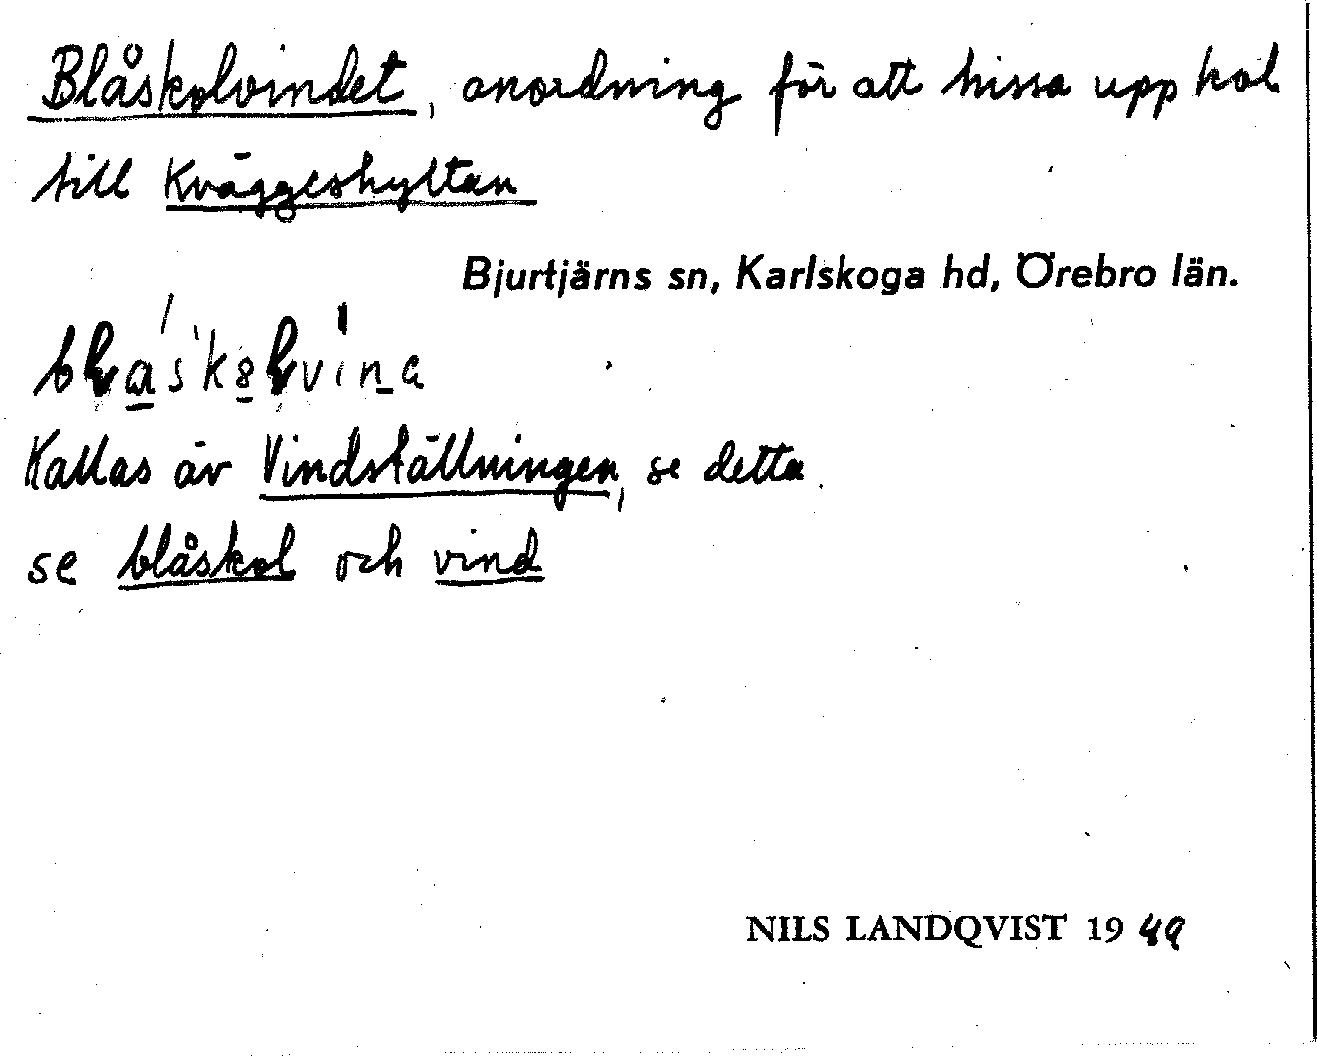 Blåskolvindet, anordning för att hissa upp kol
till Kväggeshyltan
Bjurtjärns sn, Karlskoga hd, Örebro län.
Kallas äv Vindställningen, se detta.
se blåskol och vind
NILS LANDQVIST 1949